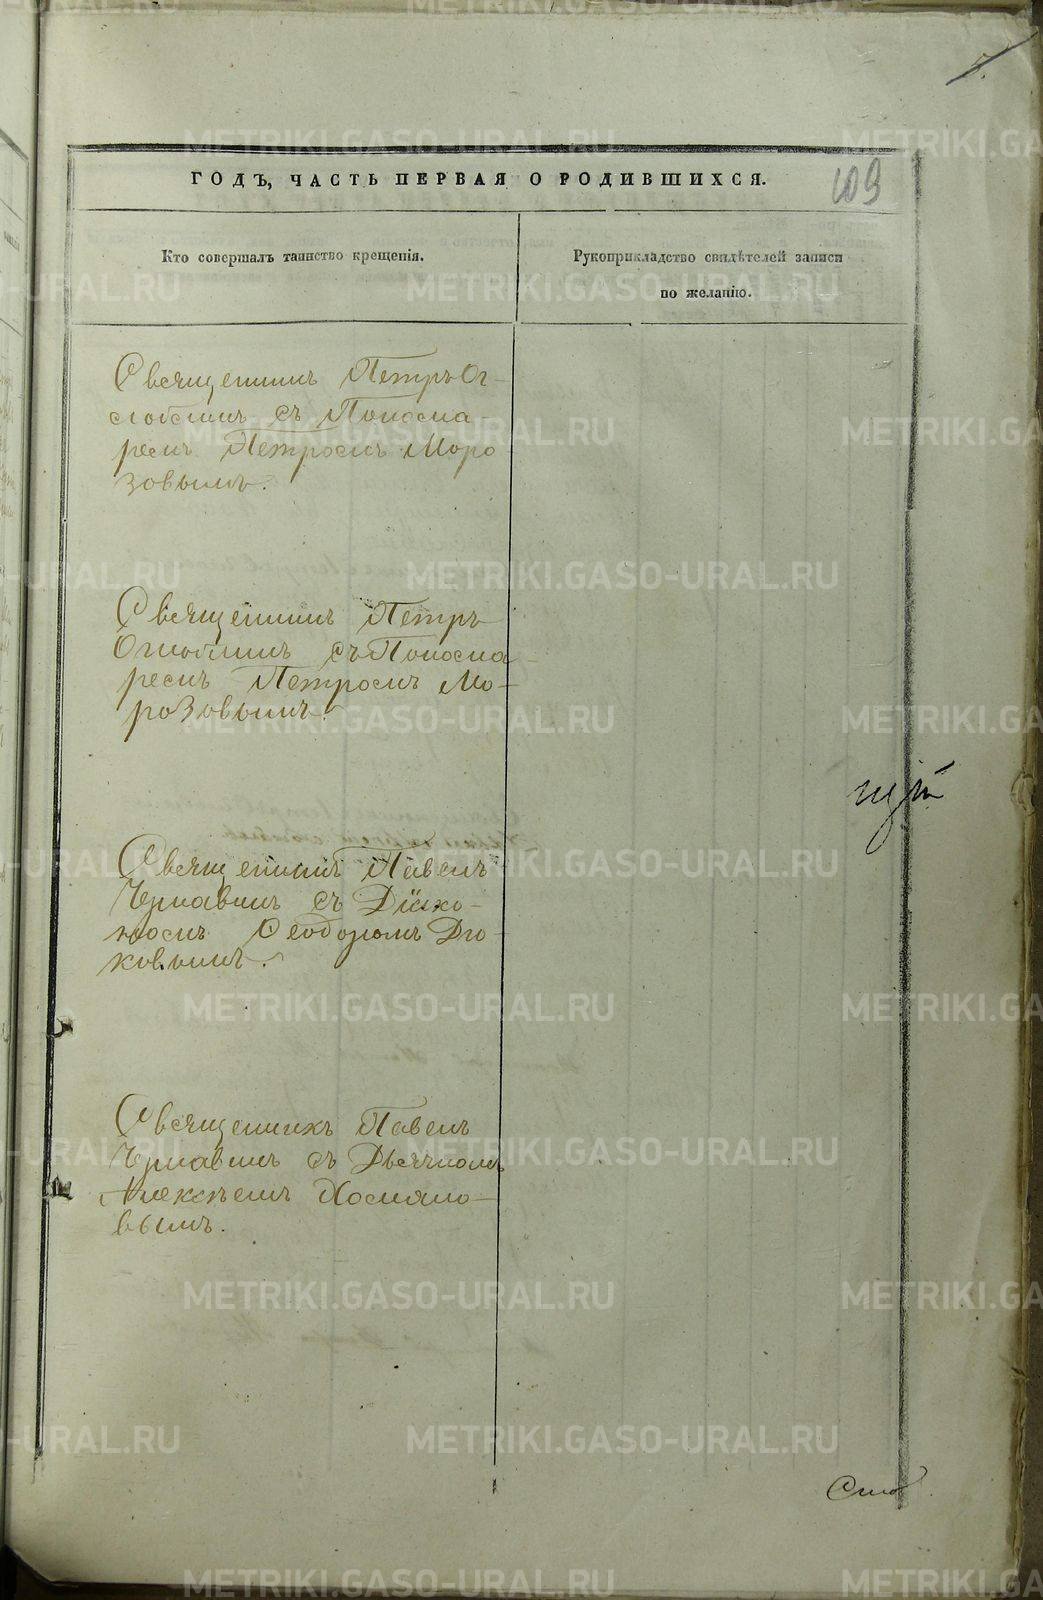 109
ГОДЪ, ЧАСТЬ ПЕРВАЯ О РОДИВШИХСЯ.
Кто совершалъ таинство крещенія.
Рукоприкладство свидѣтелей записи
по желанію.
Священникъ Петръ Ог-
лоблинъ съ Понома-
ремъ Петромъ Моро
зовымъ.
Священникъ Петръ
Оглоблинъ съ Понома-
ремъ Петромъ Мо-
розовымъ.
Священникъ Павелъ
Чернавинъ съ Діако-
номъ Ѳеодоромъ
ковымъ.
Священникъ Павелъ
Чернавинъ съ Дьячкомъ
Алексѣемъ
вымъ.
METRIKI.GASO-URAL.RU